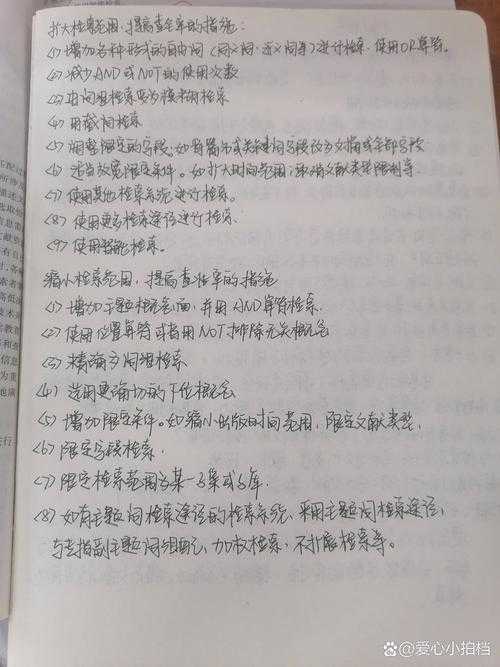 扩大检索范围,提高查全率的措施:
(1)增加各种形式的自由词(同义词·近义词等)进行检索,使用OR算符。
(2)减少AND或NOT的使用次数
(3)由词组检索更为模糊检索
(4)用截词检索
(5)调整限定的字段,如将篇名或关键词字段改为文摘或全部字段
(6)适当放宽限定条件。如扩大时间范围,取消文献类型限制等
(7)使用其他检索系统进行检索。
(8)使用更多检索途径进行检索.
(9)使用智能检索。
缩小检索范围,提高查准率的措施
(1)增加主题概念面,并用AND算符检索.
(2)使用位置算符或者用NOT排除无关概念
(3)精确为词组检索
(4)选用更确切的下位概念
(5)增加限定条件。如缩小出版时间范围,限定文献类型.
(6)限定字段检索.
(7)限定检索范围为某一子集或子库.
(8)如有主题词检索途径的检索系统,采用主题词检索途径,
与专指副主题词组配,加权检索,不扩展检索等。
@爱心小拍档